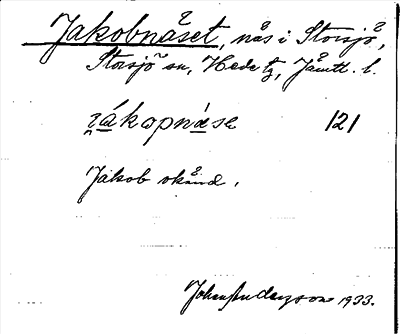 Jakobnäset, näs i Storsjö,
Storsjö sn, Hede tg, Jämtl. l.
jákopnä́se 121
Jakob okänd.
Johan Andersson 1933.